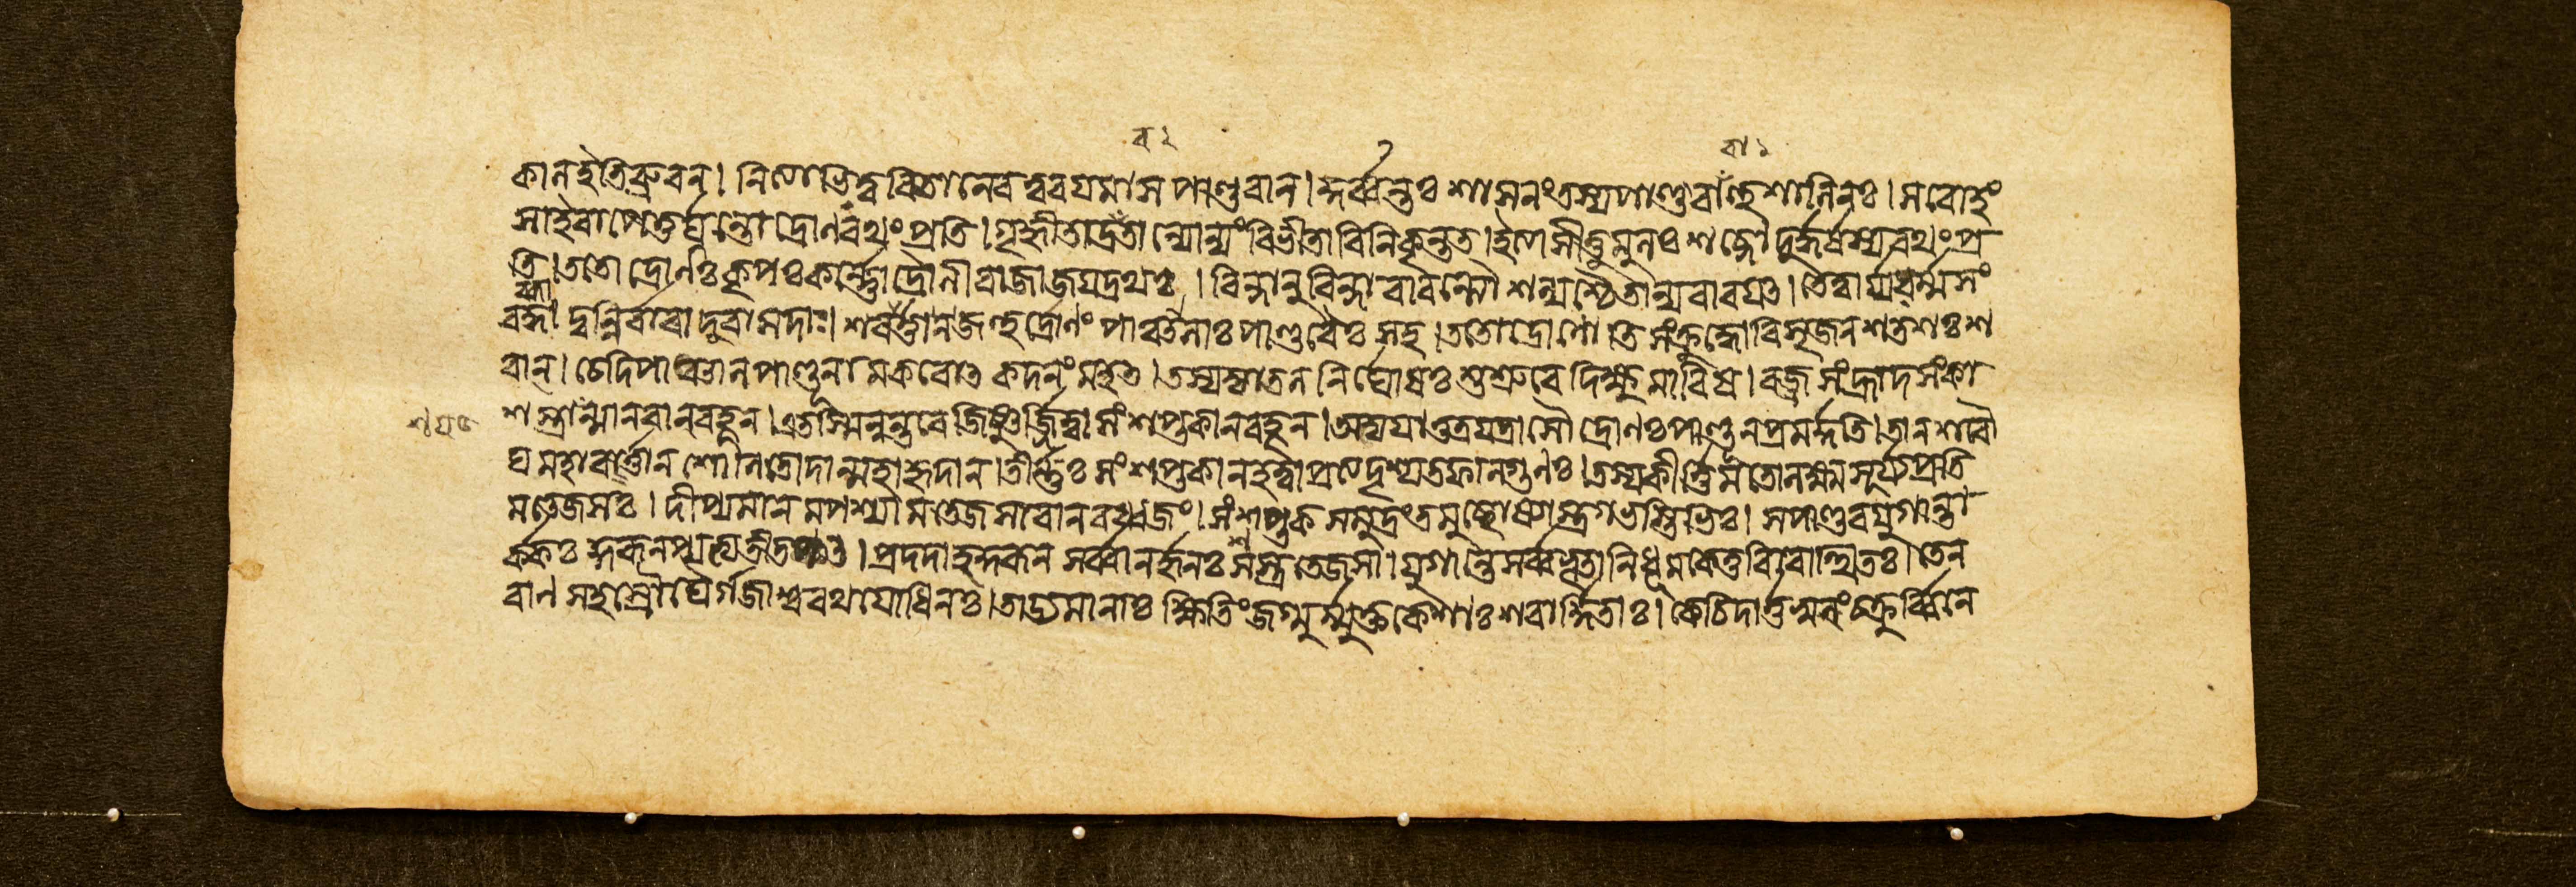 ব২
শ১
কানহৃতিব্রুবন। নিশোভিত্বরিতানেব ত্বরয়মাস পাণ্ডবান। কুর্ব্বন্তঃ শাসনংতস্যপাণ্ডবাংশ্চ শানিনঃ। সরোহং
সাইবাপেতুর্ঘ্নন্তো দ্রোণরথং প্রতি। গৃহ্নীতাদ্রতান্যোন্যং বিভীতাবিনিকৃন্তত। ইত্যাসীত্তুমুনঃ শব্দো দুর্দ্ধর্ষস্যরথং প্র
তি। ততো দ্রোণঃ কৃপঃ কর্ণ্ণো দ্রৌনীরাজাজয়দ্রথঃ। বিন্দানুবিন্দাবাবন্ত্যৌ শল্যশ্চৈতান্যবারয়ৎ। তেত্বার্য্যধর্ম্মসং
রব্ধা দুন্নির্বারা দুরাসদাঃ। শরার্ত্তানজহুর্দ্রোণং পাঞ্চালাঃ পাণ্ডবৈঃ সহ। ততোদ্রোণোতি সংক্রুদ্ধোবিসৃজন শতশঃ শ
রান। চেদিপাঞ্চালান পাণ্ডূনামকরোৎ কদনং মহত। তস্যজ্যাতন নির্ঘোষঃ শুশ্রুবে দিক্ষু মারিষ। বজ্র সংহ্রাদসংকা
শস্ত্রাসয়ন্মানবানবহূন। এতস্মিন্নন্তরে জিষ্ণুর্জিত্বা সংশপ্তকানবহূন। অভ্যয়াত্তত্রযত্রাসৌ দ্রোণঃ পাণ্ডূনপ্রমর্দ্দতি। তান শরৌ
ঘ মহাবর্ত্তান শোনিতোদান্মহাহ্রদান। তীর্ণ্ণঃ সংশপ্তকানহত্বা প্রত্যদৃশ্যতফানগুনঃ। তস্যকীর্ত্তিমতোনক্ষ্ম সূর্য্যপ্রতি
মতেজসঃ। দীপ্যমানমপশ্যাম তেজসাবানরধ্বজং। সংশপ্তক সমুদ্রংতমুচ্ছোষ্যাস্ত্রগভস্তিভিঃ। সপাণ্ডবযুগান্তা
র্কঃ কুরূনপ্যভ্যতীতপৎ। প্রদদাহকুরূন সর্ব্বানর্জ্জুনঃ শস্ত্রতেজসা। যুগান্তে সর্ব্বভূতানিধূমকেতুরিবোত্থিতঃ। তেন
বাণ সহস্রৌঘৈর্গজাশ্বরথযোধিনঃ। তাড্যমানাঃ ক্ষিতিং জগ্মুর্ম্মুক্তকেশাঃ শরার্দ্দিতাঃ। কেচিদার্ত্তস্বনং চক্রুর্ব্বিনে